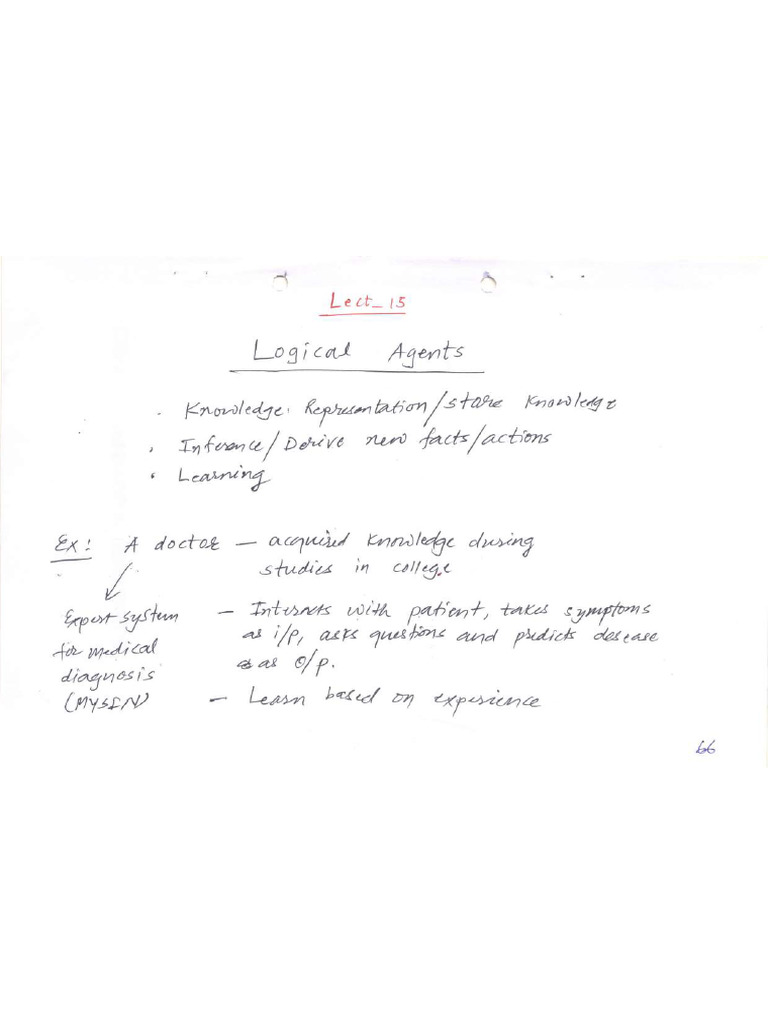 Lect_15
Logical Agents
. Knowledge. Representation/store knowledge
. Inference/Derive new facts/actions
. Learning
Ex: A doctor — acquired knowledge during
studies in college
Expert system — Interacts with patient, takes symptoms
for medical as i/p, asks questions and predicts desease
diagnosis as o/p.
(MYSIN) — Learn based on experience
66